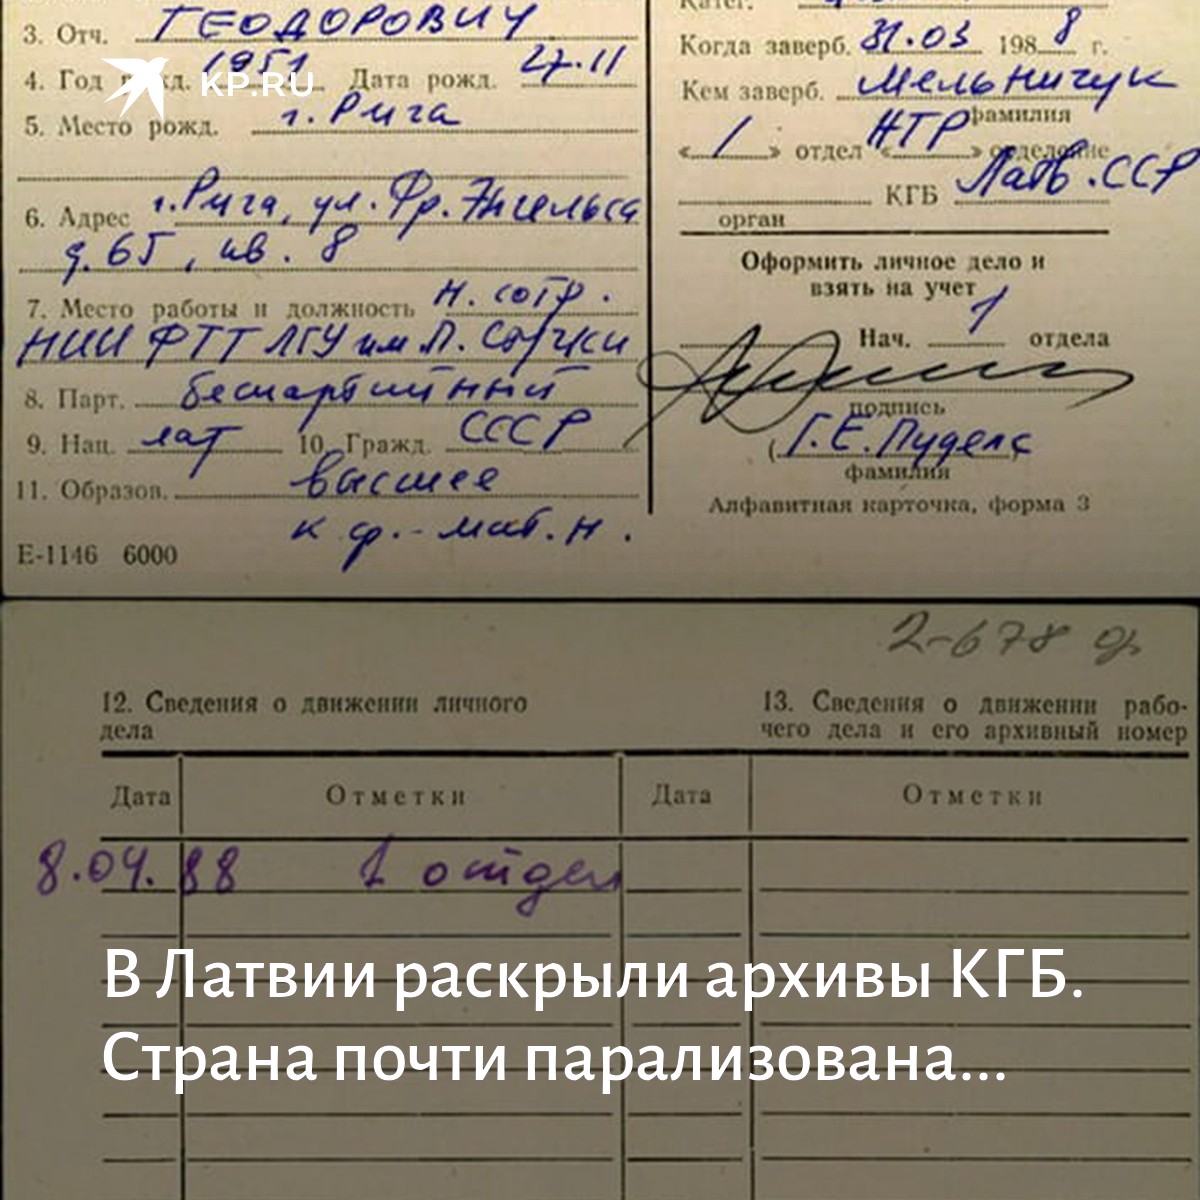 3. Отч. ТЕОДОРОВИЧ
4. Год рожд. 1951 Дата рожд. 27.11
KP.RU
5. Место рожд. г. Рига
6. Адрес г. Рига, ул. Фр. Энгельса
д. 65, кв. 8
7. Место работы и должность н. сотр.
НИИ ФТТ ЛГУ им П. Стучки
8. Парт. беспартийный
9. Нац. лат 10. Гражд. СССР
11. Образов. высшее
к ф.-мат. н.
Е-1146 6000
Катег.
Когда заверб. 31.03 1988 г.
Кем заверб. Мельничук
фамилия
«1» отдел «НТР» отделение
КГБ Латв. ССР
орган
Оформить личное дело и
взять на учет
Нач. 1 отдела
подпись
(Г. Е. Пудель)
фамилия
Алфавитная карточка, форма 3
2-678 д.
12. Сведения о движении личного
дела
13. Сведения о движении рабо-
чего дела и его архивный номер
Дата Отметки Дата Отметки
8.04.88 1 отдел
В Латвии раскрыли архивы КГБ.
Страна почти парализована...